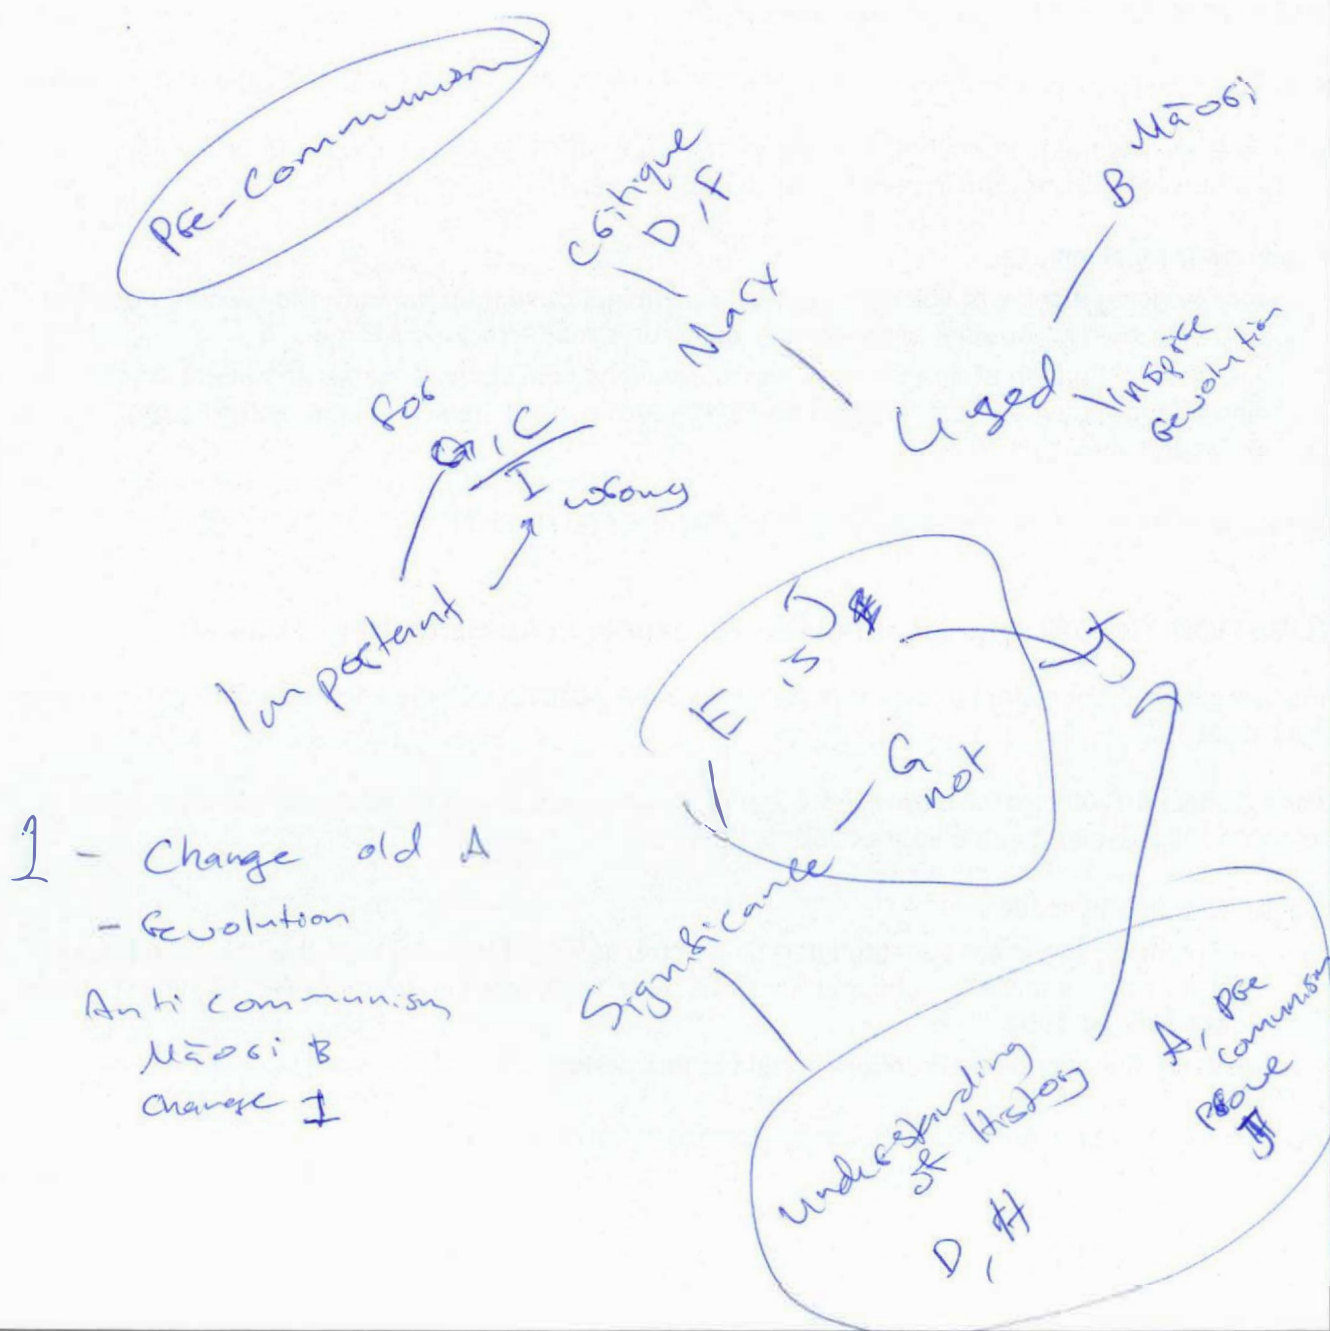 Pre-Communism
Critique
D, F
Marx
Māori
B
Used
Inspire
revolution
for
G, C
I wrong
Important
E is
J
G
not
J
Significance
1 - Change old A
- revolution
Anti communism
Māori B
change I
Understanding
of History
D, H
A, Pre
communism
prove
J